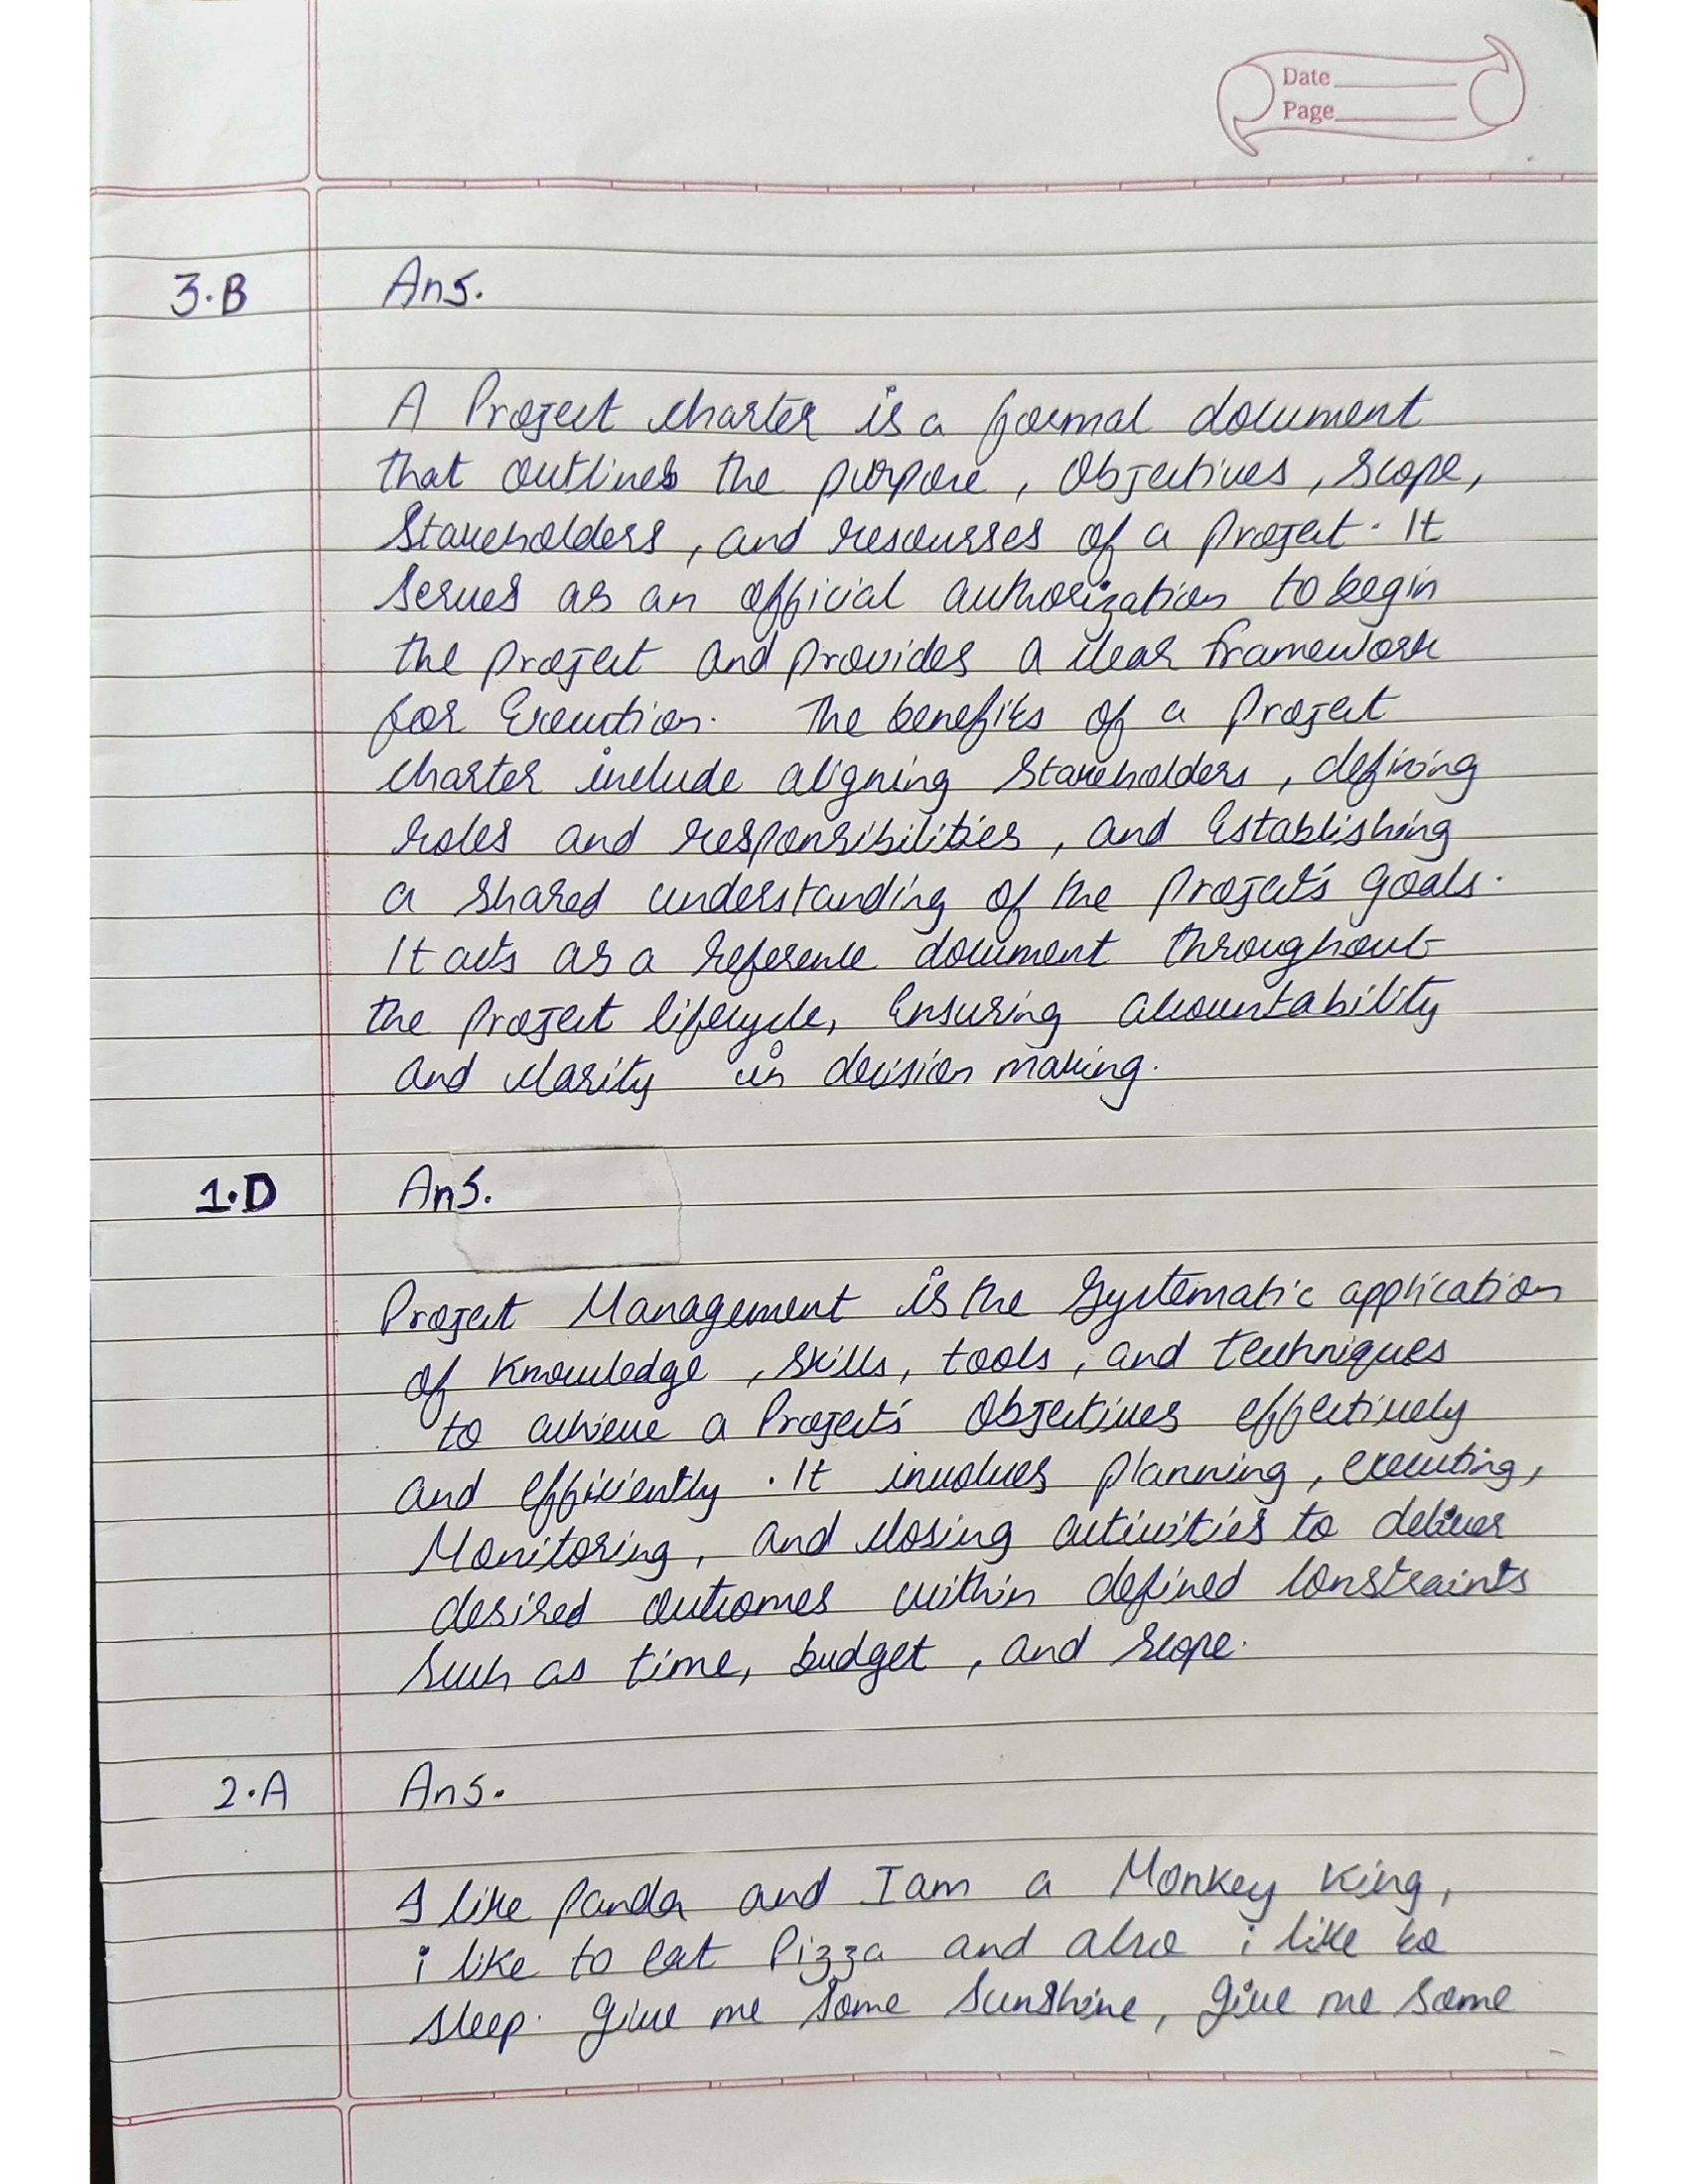 Date
Page
3.B Ans.
A Project charter is a formal document
that outlines the purpose, Objectives, Scope,
Stakeholders, and resourses of a project. It
serves as an official authorization to begin
the project and provides a clear framework
for Execution. The benefits of a Project
charter include aligning Stakeholders, defining
roles and responsibilities, and Establishing
a shared understanding of the project's goals.
It acts as a reference document throughout
the project lifecycle, Ensuring accountability
and clarity in decision making.
1.D Ans.
Project Management is the Systematic application
of Knowledge, skills, tools, and techniques
to achieve a Project's Objectives effectively
and efficiently. It involves planning, executing,
Monitoring, and closing activities to deliver
desired outcomes within defined Constraints
Such as time, budget, and scope.
2.A Ans.
I like Panda and I am a Monkey King,
i like to Eat Pizza and also i like to
sleep. Give me Some Sunshine, give me some